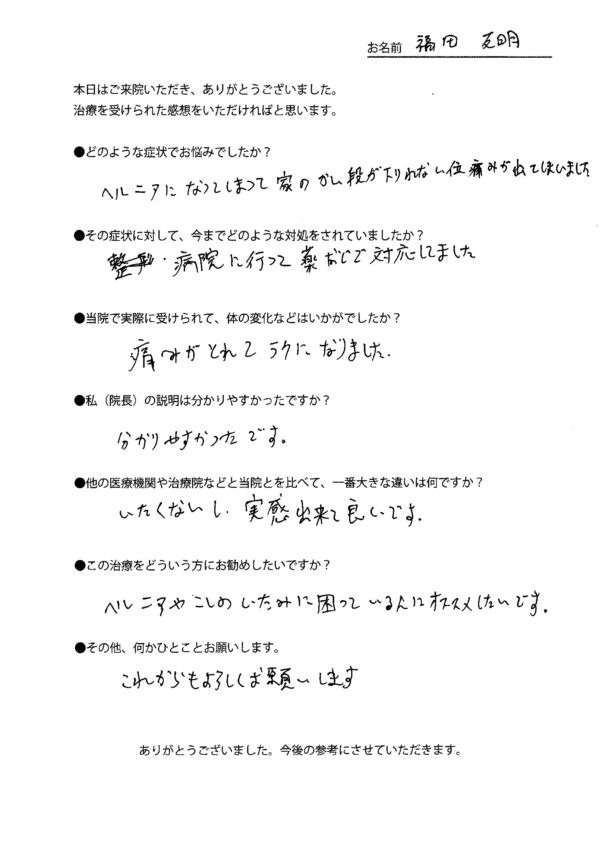 お名前 福田 克明
本日はご来院いただき、ありがとうございました。
治療を受けられた感想をいただければと思います。
●どのような症状でお悩みでしたか？
ヘルニアになってしまって家のかい段が下りれない位痛みが出てしまいました
●その症状に対して、今までどのような対処をされていましたか？
病院に行って薬などで対応してました
●当院で実際に受けられて、体の変化などはいかがでしたか？
痛みがとれてラクになりました.
●私（院長）の説明は分かりやすかったですか？
分かりやすかったです。
●他の医療機関や治療院などと当院とを比べて、一番大きな違いは何ですか？
いたくないし、実感出来て良いです.
●この治療をどういう方にお勧めしたいですか？
ヘルニアやこしのいたみに困っている人にオススメしたいです。
●その他、何かひとことお願いします。
これからもよろしくお願いします
ありがとうございました。今後の参考にさせていただきます。